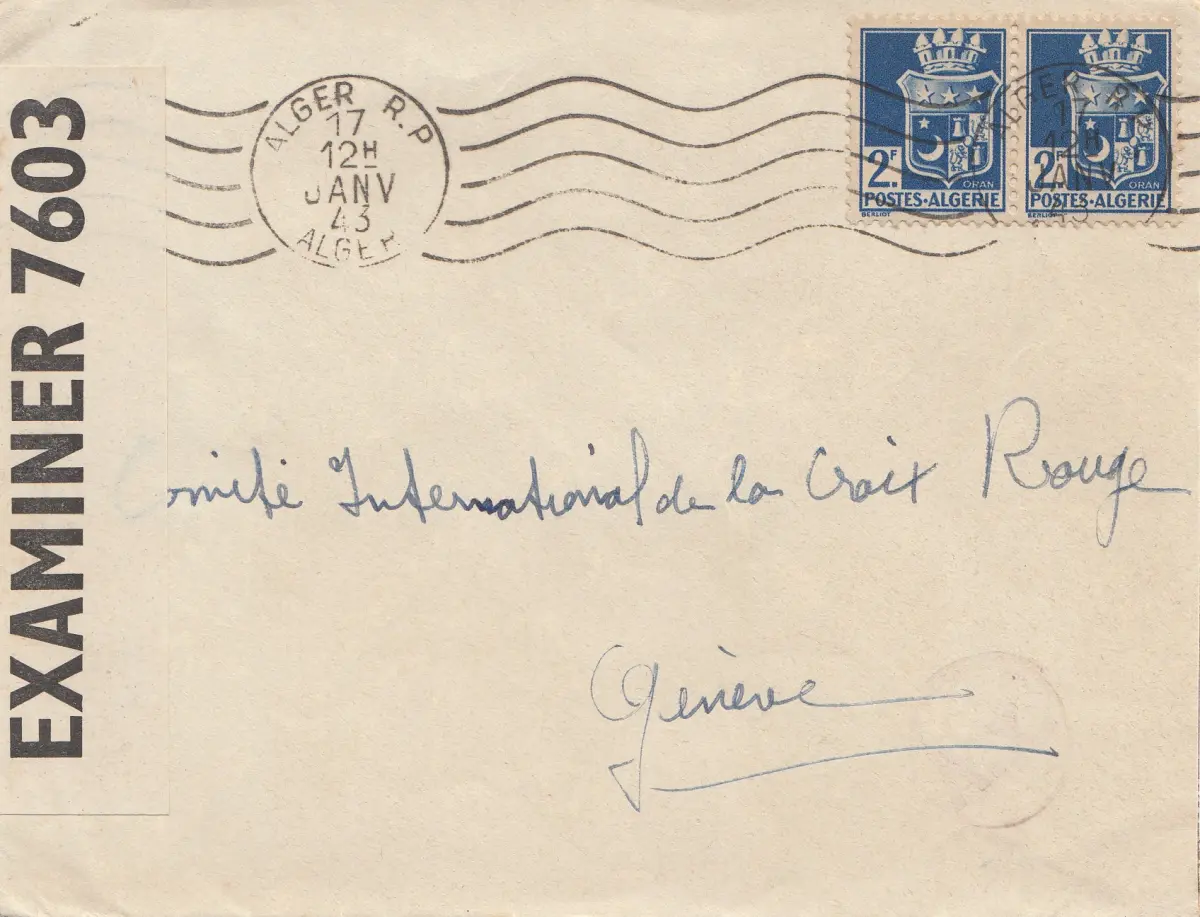 EXAMINER 7603
ALGER R.P
17
12H
JANV
43
ALGER
2F.
ORAN
POSTES-ALGERIE
BERLIOT
2F.
ORAN
POSTES-ALGERIE
BERLIOT
ALGER R.P
17
12H
JANV
43
Comité International de la Croix Rouge
Genève